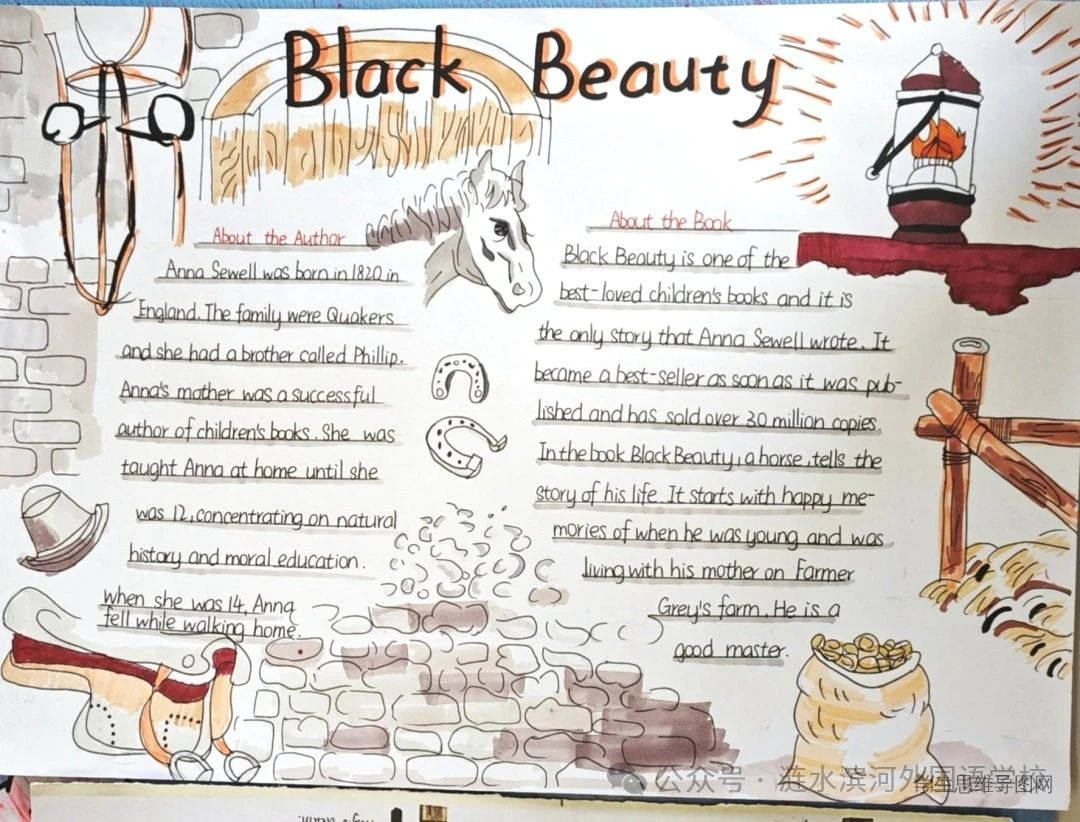 Black Beauty
About the Author
Anna Sewell was born in 1820 in
England. The family were Quakers
and she had a brother called Phillip.
Anna's mather was a successful
author of children's books. She was
taught Anna at home until she
was 12, concentrating on natural
history and moral education.
when she was 14, Anna
fell while walking home.
About the Book
Black Beauty is one of the
best-loved children's books and it is
the only story that Anna Sewell wrote. It
became a best-seller as soon as it was pub-
lished and has sold over 30 million copies.
In the book Black Beauty, a horse, tells the
story of his life. It starts with happy me-
mories of when he was young and was
living with his mother on Farmer
Grey's farm. He is a
good master.
公众号 · 涟水滨河外国语学校
学生思维导图网